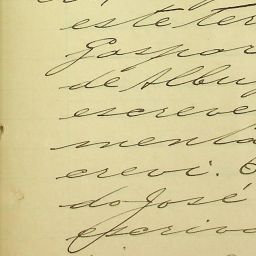 este ter
Gaspar
de Albu
escreve
menta
crevi. E
do José
escriva